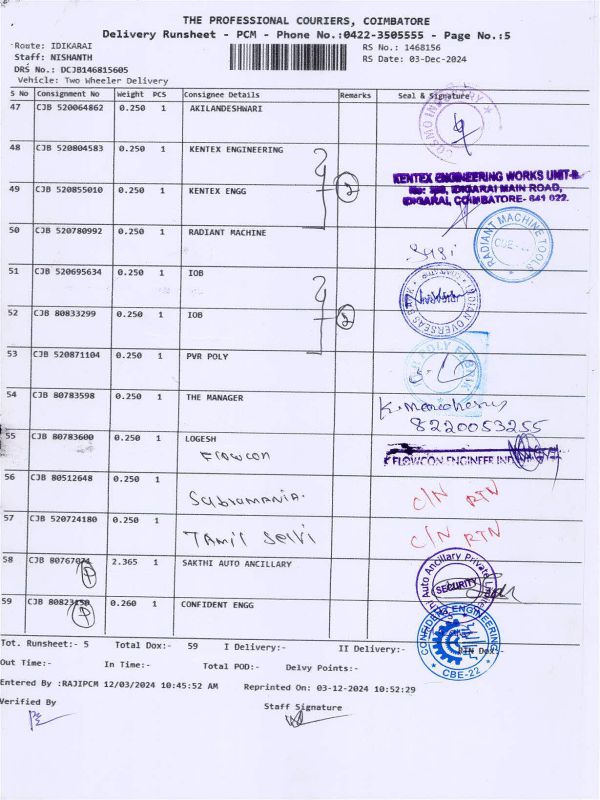 THE PROFESSIONAL COURIERS, COIMBATORE
Delivery Runsheet - PCM - Phone No.:0422-3505555 - Page No.:5
Route: IDIKARAI RS No.: 1468156
Staff: NISHANTH RS Date: 03-Dec-2024
DRS No.: DCJB146815605
Vehicle: Two Wheeler Delivery
S No Consignment No Weight PCS Consignee Details Remarks Seal & Signature
47 CJB 520064862 0.250 1 AKILANDESHWARI
48 CJB 520804583 0.250 1 KENTEX ENGINEERING
KENTEX ENGINEERING WORKS UNIT-II
IDIGARAI MAIN ROAD,
IDIGARAI, COIMBATORE- 641 022.
49 CJB 520855010 0.250 1 KENTEX ENGG
50 CJB 520780992 0.250 1 RADIANT MACHINE
RADIANT MACHINE TOOLS
51 CJB 520695634 0.250 1 IOB
INDIAN OVERSEAS BANK
52 CJB 80833299 0.250 1 IOB
53 CJB 520871104 0.250 1 PVR POLY
POLY FABRIK
54 CJB 80783598 0.250 1 THE MANAGER
8220053255
55 CJB 80783600 0.250 1 LOGESH
Flowcon
FLOWCON ENGINEER
56 CJB 80512648 0.250 1
Subramania. C/N RTN
57 CJB 520724180 0.250 1
Tamil Selvi C/N RTN
58 CJB 2.365 1 SAKTHI AUTO ANCILLARY
Auto Ancillary Private
SECURITY
59 CJB 0.260 1 CONFIDENT ENGG
CONFIDENT ENGINEERING
CBE-22
Tot. Runsheet:- 5 Total Dox:- 59 I Delivery:- II Delivery:- Dox:-
Out Time:- In Time:- Total POD:- Delvy Points:-
Entered By :RAJIPCM 12/03/2024 10:45:52 AM Reprinted On: 03-12-2024 10:52:29
Verified By Staff Signature